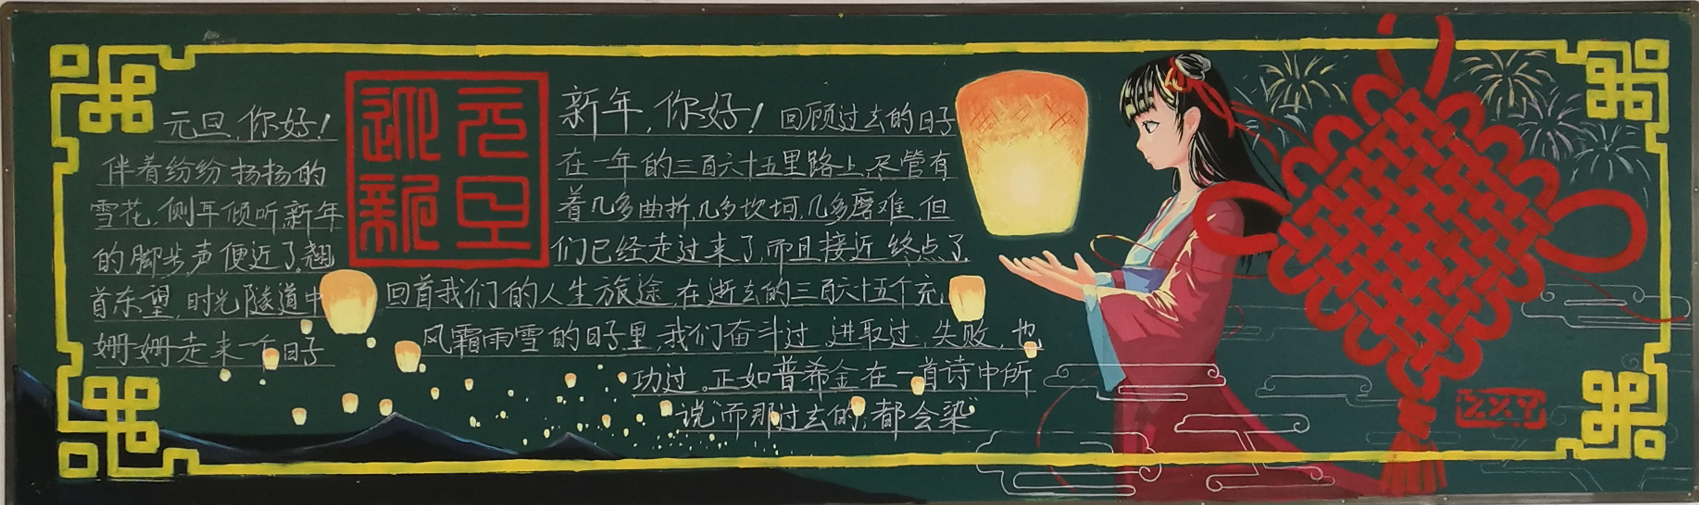 元旦,你好!
伴着纷纷扬扬的
雪花,侧耳倾听,新年
的脚步声便近了。翘
首东望,时光隧道中
姗姗走来一个日子
迎元
新旦
新年,你好!回顾过去的日子
在一年的三百六十五里路上,尽管有
着几多曲折,几多坎坷,几多磨难,但
们已经走过来了,而且接近终点了.
回首我们的人生旅途,在逝去的三百六十五个充
风霜雨雪的日子里,我们奋斗过,进取过,失败,也
功过。正如普希金在一首诗中所
说“而那过去的,都会染”